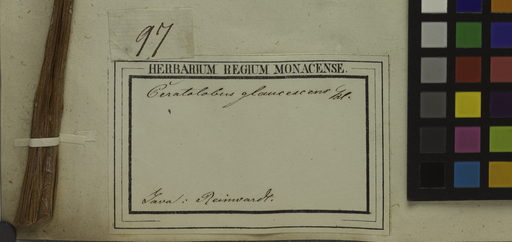 97
HERBARIUM REGIUM MONACENSE.
Ceratolobus glaucescens Bl.
Java: Reinwardt.